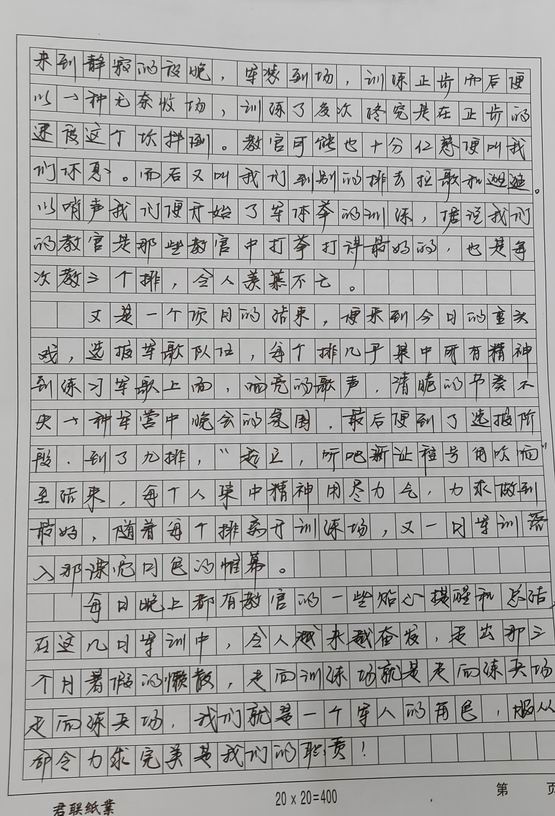 来到静寂的夜晚，军装到场，训练正步而后便
以一种无奈收场，训练了多次终究是在正步的
速度这个坎摔倒。教官可能也十分仁慈便叫我
们休息。而后又叫我们到别的排去拉歌和
以哨声我们便开始了军体拳的训练，据说我们
的教官是那些教官中打拳打得最好的，也是每
次教三个排，令人羡慕不已。
又是一个项目的结束，便来到今日的重头
戏，选拔军歌队伍，每个排几乎集中所有精神
到练习军歌上面，响亮的歌声，清脆的节奏不
失一种军营中晚会的氛围，最后便到了选拔阶
段，到了九排，“起立，听吧新征程号角吹响”
至结束，每个人集中精神用尽力气，力求做到
最好，随着每个排离开训练场，又一日军训落
入那漆黑的帷幕。
每日晚上都有教官的一些贴心提醒和总结，
在这几日军训中，令人越来越奋发，走出那三
个月暑假的懒散，走向训练场就是走向练兵场
走向练兵场，我们就是一个军人的角色，服从
命令力求完美是我们的职责！
君联纸業
20 x 20=400
第 页